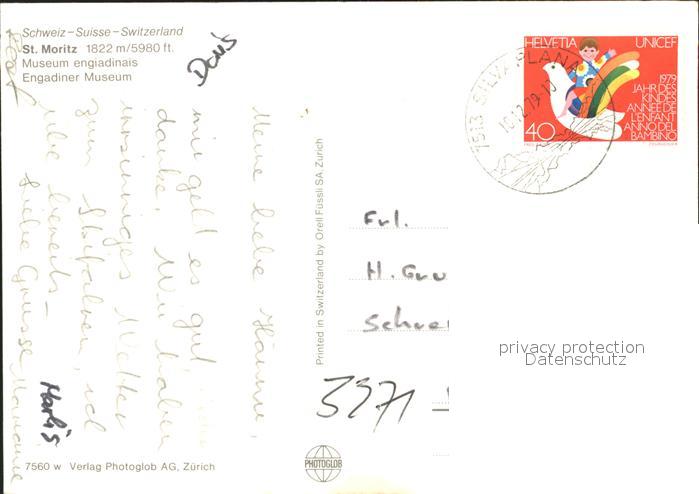 Schweiz – Suisse – Switzerland
St. Moritz 1822 m/5980 ft.
Museum engiadinais
Engadiner Museum
Meine liebe
mir geht es gut,
danke. Wir haben
Wetter
zum Skifahren, ich
übe bereits –
Liebe Grüsse Marianne
Marlis
7560 w Verlag Photoglob AG, Zürich
Printed in Switzerland by Orell Füssli SA, Zürich
PHOTOGLOB
HELVETIA UNICEF
1979
JAHR DES
KINDES
ANNEE DE
L'ENFANT
ANNO DEL
BAMBINO
40
7513 SILVAPLANA
Frl.
H. Gru
Schwe
privacy protection
Datenschutz